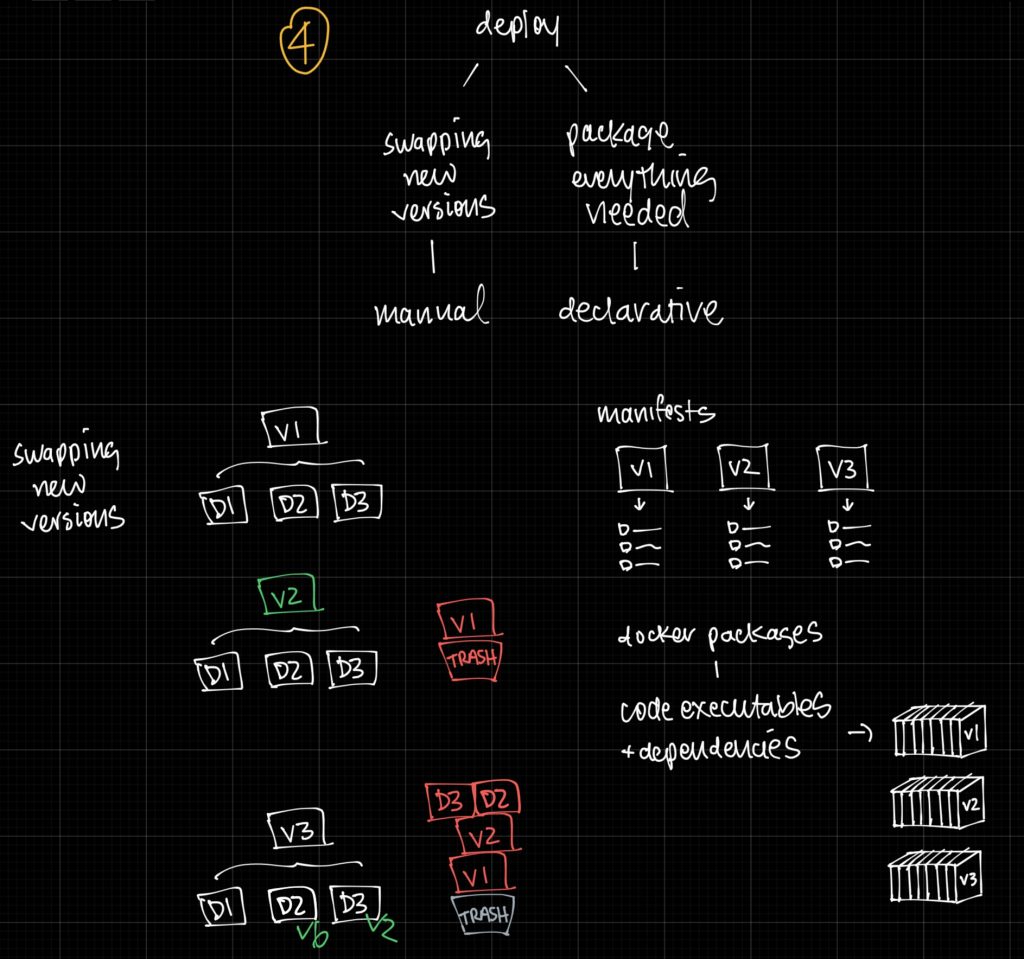 4
deploy
swapping
new
versions
package
everything
needed
manual
declarative
swapping
new
versions
V1
D1 D2 D3
V2
D1 D2 D3
V1
TRASH
V3
D1 D2 D3
V6 V2
D3 D2
V2
V1
TRASH
manifests
V1 V2 V3
docker packages
code executables
+ dependencies
V1
V2
V3